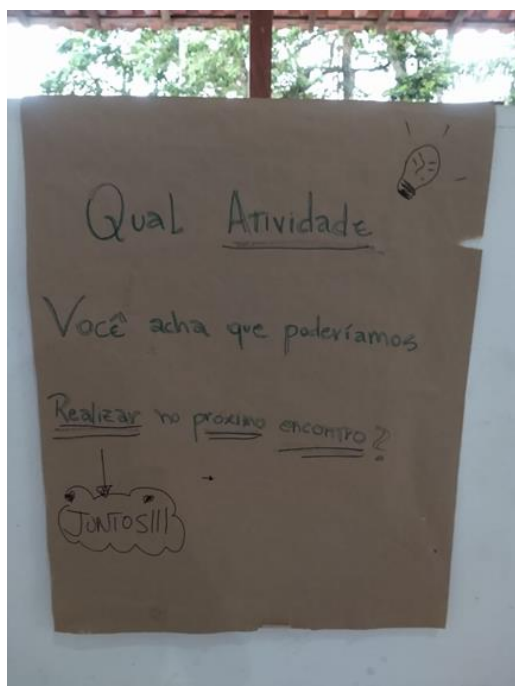 Qual Atividade
Você acha que poderíamos
Realizar no próximo encontro?
JUNTOS!!!